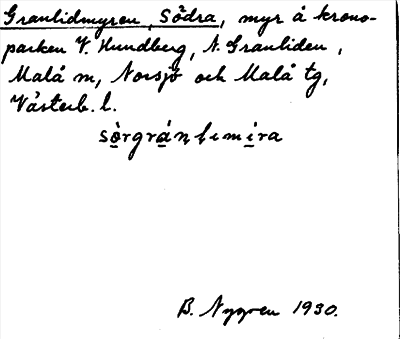 Granlidmyren, Södra, myr å krono-
parken V. Hundberg, N. Granliden,
Malå sn, Norsjö och Malå tg,
Västerb. l.
sò̱rgrá̱ṇḷımi̱ra
B. Nygren 1930.